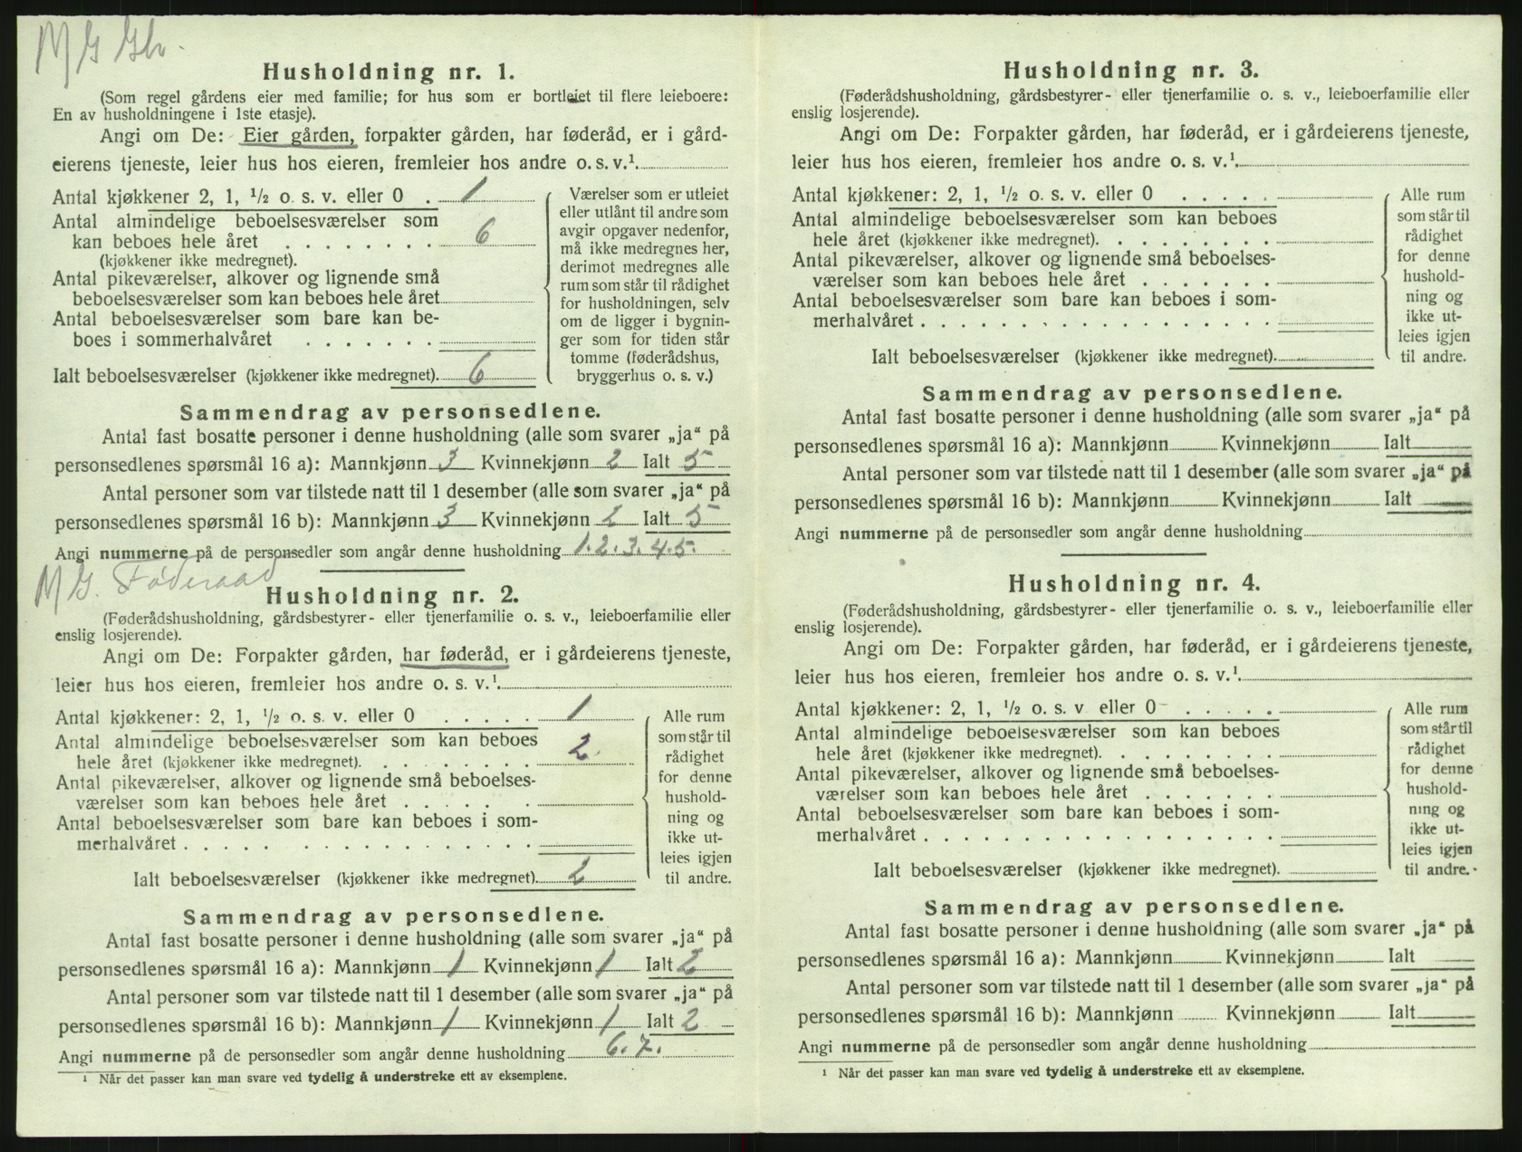 M G Gbr.
Husholdning nr. 1.
(Som regel gårdens eier med familie; for hus som er bortleiet til flere leieboere:
En av husholdningene i 1ste etasje).
Angi om De: Eier gården, forpakter gården, har føderåd, er i gård-
eierens tjeneste, leier hus hos eieren, fremleier hos andre o. s. v.¹
Antal kjøkkener 2, 1, ½ o. s. v. eller 0 . 1
Antal almindelige beboelsesværelser som
kan beboes hele året . . . . . . . . 6
(kjøkkener ikke medregnet).
Antal pikeværelser, alkover og lignende små
beboelsesværelser som kan beboes hele året
Antal beboelsesværelser som bare kan be-
boes i sommerhalvåret . . . . . . .
Ialt beboelsesværelser (kjøkkener ikke medregnet). 6
Værelser som er utleiet
eller utlånt til andre som
avgir opgaver nedenfor,
må ikke medregnes her,
derimot medregnes alle
rum som står til rådighet
for husholdningen, selv
om de ligger i bygnin-
ger som for tiden står
tomme (føderådshus,
bryggerhus o. s. v.)
Sammendrag av personsedlene.
Antal fast bosatte personer i denne husholdning (alle som svarer „ja“ på
personsedlenes spørsmål 16 a): Mannkjønn 3 Kvinnekjønn 2 Ialt 5
Antal personer som var tilstede natt til 1 desember (alle som svarer „ja“ på
personsedlenes spørsmål 16 b): Mannkjønn 3 Kvinnekjønn 2 Ialt 5
Angi nummerne på de personsedler som angår denne husholdning 1.2.3.4.5.
M G. Føderaad
Husholdning nr. 2.
(Føderådshusholdning, gårdsbestyrer- eller tjenerfamilie o. s. v., leieboerfamilie eller
enslig losjerende).
Angi om De: Forpakter gården, har føderåd, er i gårdeierens tjeneste,
leier hus hos eieren, fremleier hos andre o. s. v.¹
Antal kjøkkener: 2, 1, ½ o. s. v. eller 0 . . . . . 1
Antal almindelige beboelsesværelser som kan beboes
hele året (kjøkkener ikke medregnet). . . . . . . . . 2
Antal pikeværelser, alkover og lignende små beboelses-
værelser som kan beboes hele året . . . . . . .
Antal beboelsesværelser som bare kan beboes i som-
merhalvåret . . . . . . . . . . . . . . . .
Ialt beboelsesværelser (kjøkkener ikke medregnet). 2
Alle rum
som står til
rådighet
for denne
hushold-
ning og
ikke ut-
leies igjen
til andre.
Sammendrag av personsedlene.
Antal fast bosatte personer i denne husholdning (alle som svarer „ja“ på
personsedlenes spørsmål 16 a): Mannkjønn 1 Kvinnekjønn 1 Ialt 2
Antal personer som var tilstede natt til 1 desember (alle som svarer „ja“ på
personsedlenes spørsmål 16 b): Mannkjønn 1 Kvinnekjønn 1 Ialt 2
Angi nummerne på de personsedler som angår denne husholdning 6. 7.
¹ Når det passer kan man svare ved tydelig å understreke ett av eksemplene.
Husholdning nr. 3.
(Føderådshusholdning, gårdsbestyrer- eller tjenerfamilie o. s. v., leieboerfamilie eller
enslig losjerende).
Angi om De: Forpakter gården, har føderåd, er i gårdeierens tjeneste,
leier hus hos eieren, fremleier hos andre o. s. v.¹
Antal kjøkkener: 2, 1, ½ o. s. v. eller 0 . . . . .
Antal almindelige beboelsesværelser som kan beboes
hele året (kjøkkener ikke medregnet). . . . . . . . .
Antal pikeværelser, alkover og lignende små beboelses-
værelser som kan beboes hele året . . . . . . .
Antal beboelsesværelser som bare kan beboes i som-
merhalvåret . . . . . . . . . . . . . . . . . .
Ialt beboelsesværelser (kjøkkener ikke medregnet).
Alle rum
som står til
rådighet
for denne
hushold-
ning og
ikke ut-
leies igjen
til andre.
Sammendrag av personsedlene.
Antal fast bosatte personer i denne husholdning (alle som svarer „ja“ på
personsedlenes spørsmål 16 a): Mannkjønn Kvinnekjønn Ialt
Antal personer som var tilstede natt til 1 desember (alle som svarer „ja“ på
personsedlenes spørsmål 16 b): Mannkjønn Kvinnekjønn Ialt
Angi nummerne på de personsedler som angår denne husholdning
Husholdning nr. 4.
(Føderådshusholdning, gårdsbestyrer- eller tjenerfamilie o. s. v., leieboerfamilie eller
enslig losjerende).
Angi om De: Forpakter gården, har føderåd, er i gårdeierens tjeneste,
leier hus hos eieren, fremleier hos andre o. s. v.¹
Antal kjøkkener: 2, 1, ½ o. s. v eller 0 . . . . .
Antal almindelige beboelsesværelser som kan beboes
hele året (kjøkkener ikke medregnet). . . . . . . . .
Antal pikeværelser, alkover og lignende små beboelses-
værelser som kan beboes hele året . . . . . . .
Antal beboelsesværelser som bare kan beboes i som-
merhalvåret . . . . . . . . . . . . . . . . . .
Ialt beboelsesværelser (kjøkkener ikke medregnet).
Alle rum
som står til
rådighet
for denne
hushold-
ning og
ikke ut-
leies igjen
til andre.
Sammendrag av personsedlene.
Antal fast bosatte personer i denne husholdning (alle som svarer „ja“ på
personsedlenes spørsmål 16 a): Mannkjønn Kvinnekjønn Ialt
Antal personer som var tilstede natt til 1 desember (alle som svarer „ja“ på
personsedlenes spørsmål 16 b): Mannkjønn Kvinnekjønn Ialt
Angi nummerne på de personsedler som angår denne husholdning
¹ Når det passer kan man svare ved tydelig å understreke ett av eksemplene.